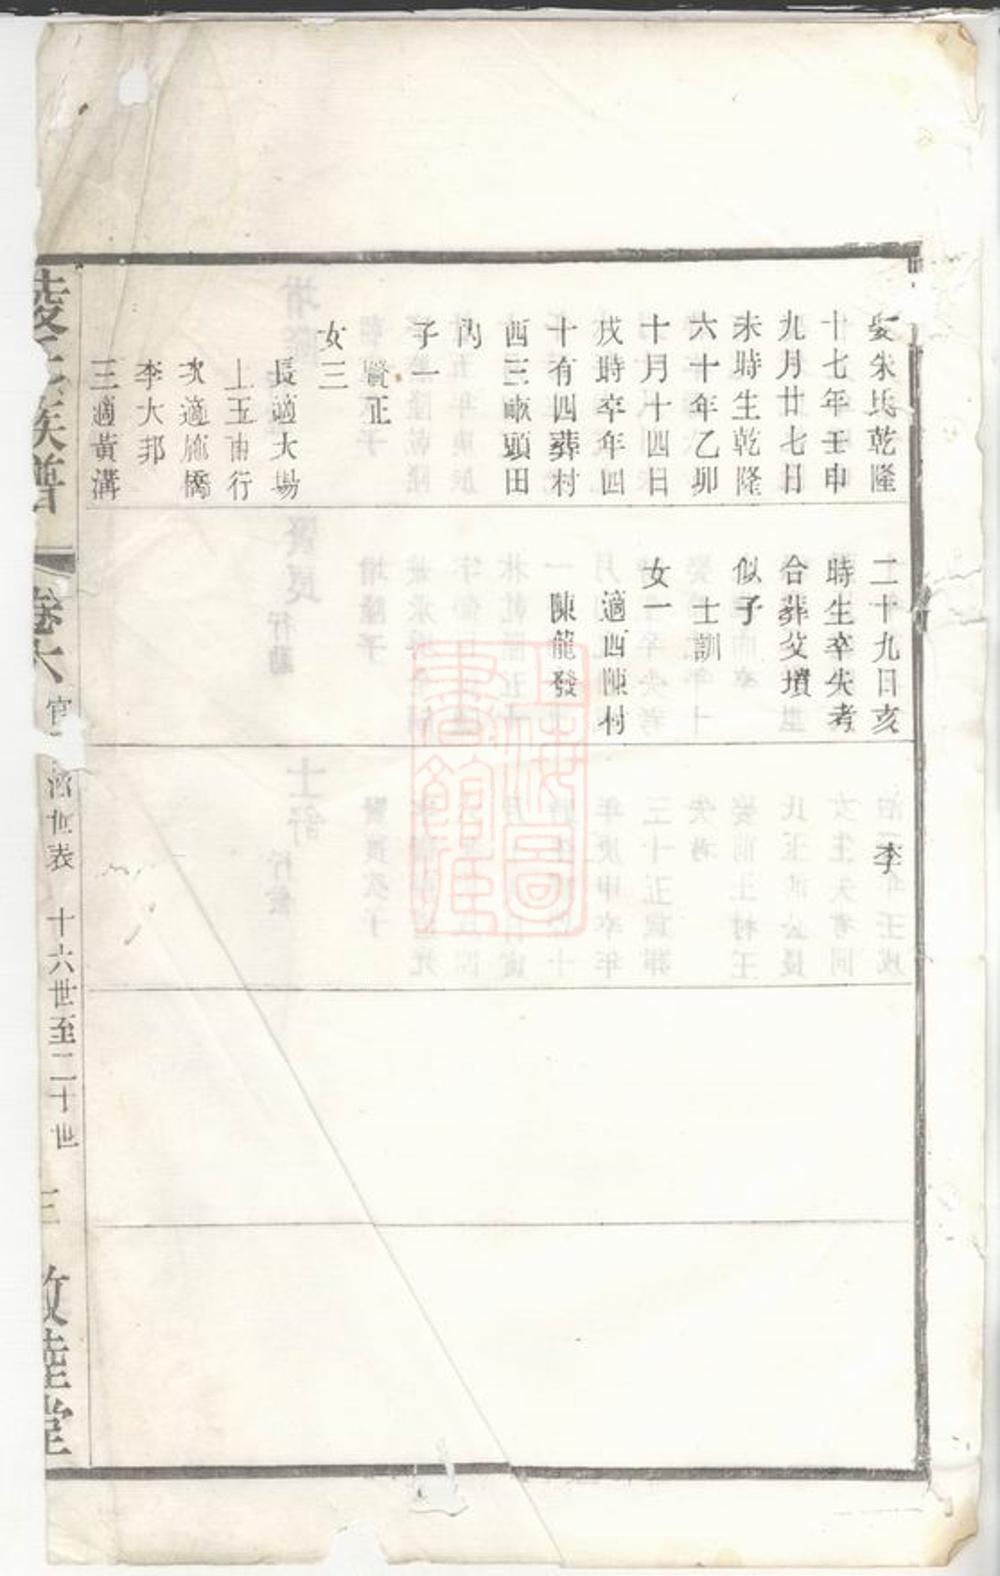 娶朱氏乾隆
十七年壬申
九月廿七日
未時生乾隆
六十年乙卯
十月十四日
戌時卒年四
十有四葬村
西三畝頭田
內
子一
賢正
女三
長適大場
上玉甫行
次適施橋
李大邦
三適黃溝
二十九日亥
時生卒失考
合葬父墳
似子
士訓
女一
適西陳村
陳龍發
李
族譜
卷六
世表
十六世至二十世
三
敦睦堂
上海圖書館藏